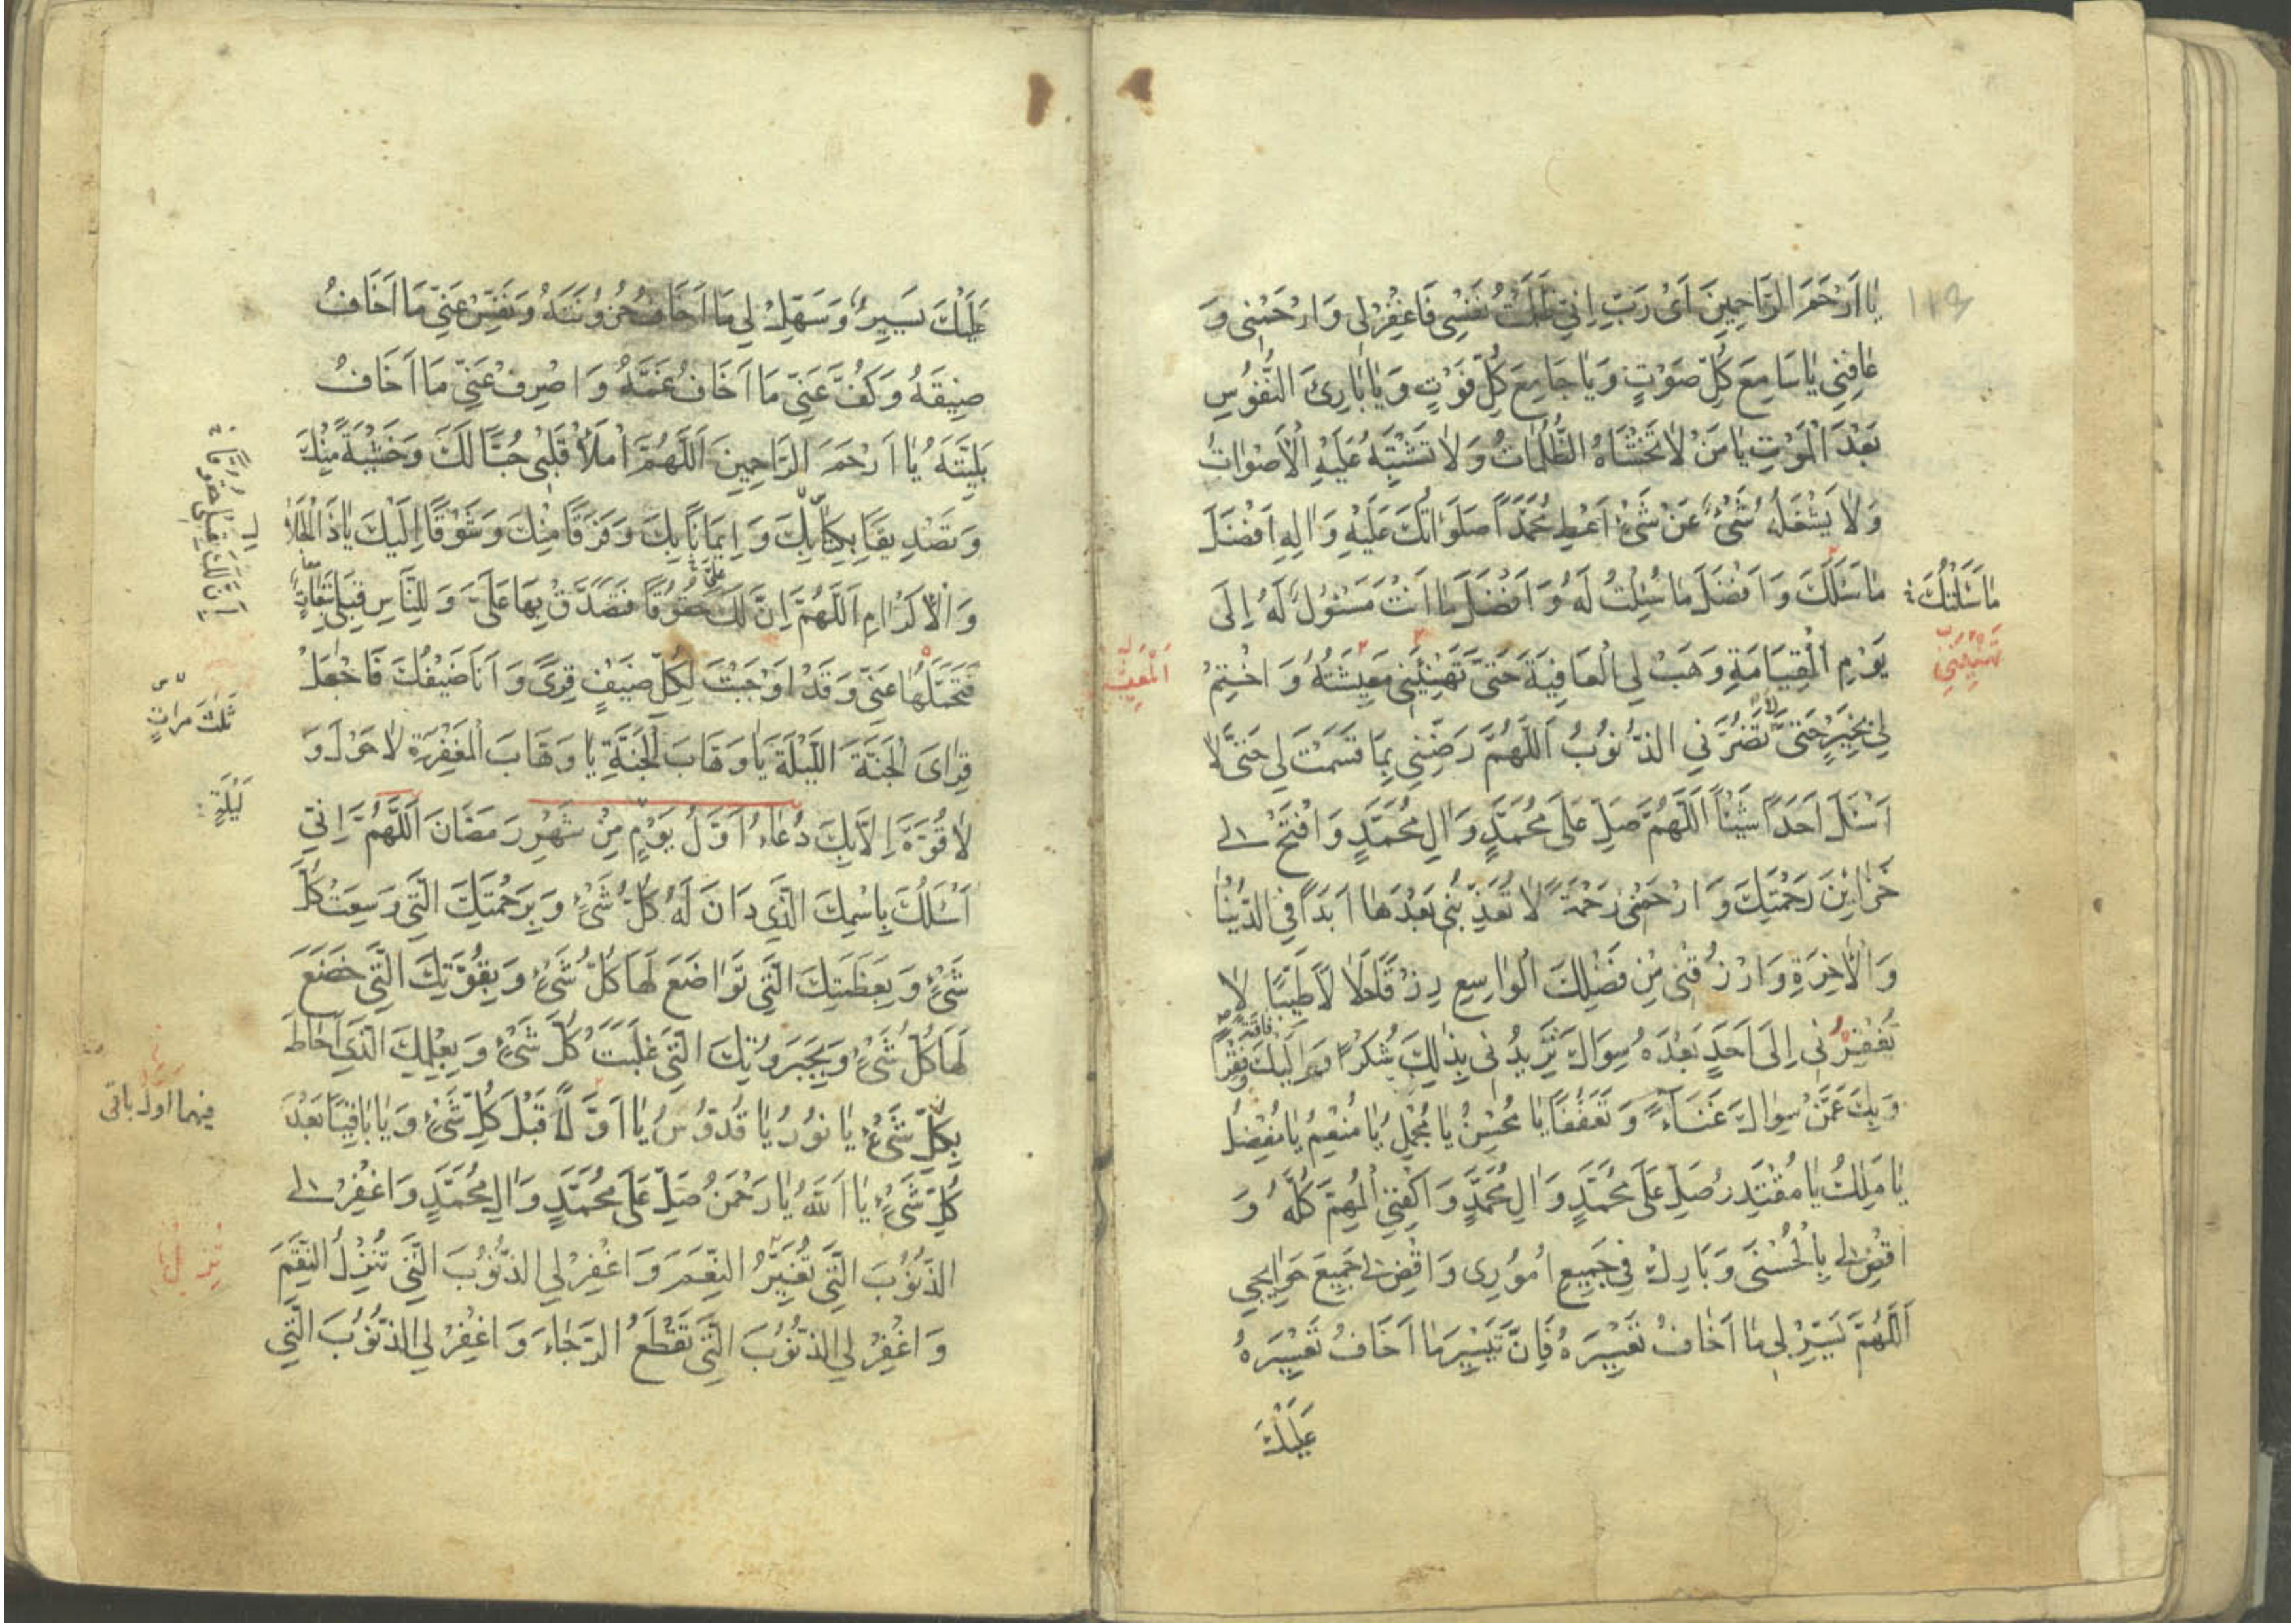 يا اَرْحَمَ الرّاحِمينَ اَىْ رَبِّ اِنّي ظَلَمْتُ نَفْسي فَاغْفِرْ لي وَارْحَمْني وَ
عافِني يا سامِعَ كُلِّ صَوْتٍ وَيا جامِعَ كُلِّ فَوْتٍ وَيا بارِئَ النُّفُوسِ
بَعْدَ الْمَوْتِ يا مَنْ لا تَغْشاهُ الظُّلُماتُ وَلا تَشْتَبِهُ عَلَيْهِ الْاَصْواتُ
وَلا يَشْغَلُهُ شَىْءٌ عَنْ شَىْءٍ اَعْطِ مُحَمَّداً صَلَواتُكَ عَلَيْهِ وَالِهِ اَفْضَلَ
ما سَئَلَكَ وَاَفْضَلَ ما سُئِلْتَ لَهُ وَاَفْضَلَ ما اَنْتَ مَسْئُولٌ لَهُ اِلى
ما سَئَلْتُكَ
يَوْمِ الْقِيامَةِ وَهَبْ لِي الْعافِيَةَ حَتّى تَهْنِئَني مَعيشَتُهُ وَاخْتِمْ
لي بِخَيْرٍ حَتّى لا تَضُرَّنِي الذُّنُوبُ اَللّهُمَّ رَضِّني بِما قَسَمْتَ لي حَتّى لا
اَسْئَلَ اَحَداً شَيْئاً اَللّهُمَّ صَلِّ عَلى مُحَمَّدٍ وَالِ مُحَمَّدٍ وَافْتَحْ لي
خَزائِنَ رَحْمَتِكَ وَارْحَمْني رَحْمَةً لا تُعَذِّبُني بَعْدَها اَبَداً فِي الدُّنْيا
وَالْاخِرَةِ وَارْزُقْني مِنْ فَضْلِكَ الْواسِعِ رِزْقاً حَلالاً طَيِّباً لا
تُفْقِرُني اِلى اَحَدٍ بَعْدَهُ سِواكَ تَزيدُني بِذلِكَ شُكْراً وَاِلَيْكَ فاقَةً وَفَقْراً
وَبِكَ عَمَّنْ سِواكَ غَناءً وَتَعَفُّفاً يا مُحْسِنُ يا مُجْمِلُ يا مُنْعِمُ يا مُفْضِلُ
يا مَليكُ يا مُقْتَدِرُ صَلِّ عَلى مُحَمَّدٍ وَالِ مُحَمَّدٍ وَاكْفِنِي الْمُهِمَّ كُلَّهُ وَ
اقْضِ لي بِالْحُسْنى وَبارِكْ في جَميعِ اُمُوري وَاقْضِ لي جَميعَ حَوائِجي
اَللّهُمَّ يَسِّرْ لي ما اَخافُ تَعْسيرَهُ فَاِنَّ تَيْسيرَ ما اَخافُ تَعْسيرَهُ
عَلَيْكَ
عَلَيْكَ يَسيرٌ وَسَهِّلْ لي ما اَخافُ حُزُونَتَهُ وَنَفِّسْ عَنّي ما اَخافُ
ضيقَهُ وَكُفَّ عَنّي ما اَخافُ غَمَّهُ وَاصْرِفْ عَنّي ما اَخافُ
بَلِيَّتَهُ يا اَرْحَمَ الرّاحِمينَ اَللّهُمَّ امْلَأْ قَلْبي حُبّاً لَكَ وَخَشْيَةً مِنْكَ
وَتَصْديقاً بِكِتابِكَ وَايماناً بِكَ وَفَرَقاً مِنْكَ وَشَوْقاً اِلَيْكَ يا ذَا الْجَلالِ
وَالْاِكْرامِ اَللّهُمَّ اِنَّ لَكَ حُقُوقاً فَتَصَدَّقْ بِها عَلَىَّ وَلِلنّاسِ قِبَلي تَبِعاتٌ
فَتَحَمَّلْها عَنّي وَقَدْ اَوْجَبْتَ لِكُلِّ ضَيْفٍ قِرىً وَاَنَا ضَيْفُكَ فَاجْعَلْ
ثلث مراتٍ
قِراىَ الْجَنَّةَ اللَّيْلَةَ يا وَهّابَ الْجَنَّةِ يا وَهّابَ الْمَغْفِرَةِ لا حَوْلَ وَ
لَيْلَةٍ
لا قُوَّةَ اِلّا بِكَ دُعاءُ اَوَّلُ يَوْمٍ مِنْ شَهْرِ رَمَضانَ اَللّهُمَّ اِنّي
اَسْئَلُكَ بِاسْمِكَ الَّذي دانَ لَهُ كُلُّ شَىْءٍ وَبِرَحْمَتِكَ الَّتي وَسِعَتْ كُلَّ
شَىْءٍ وَبِعَظَمَتِكَ الَّتي تَواضَعَ لَها كُلُّ شَىْءٍ وَبِقُوَّتِكَ الَّتي خَضَعَ
لَها كُلُّ شَىْءٍ وَبِجَبَرُوتِكَ الَّتي غَلَبَتْ كُلَّ شَىْءٍ وَبِعِلْمِكَ الَّذي اَحاطَ
بِكُلِّ شَىْءٍ يا نُورُ يا قُدُّوسُ يا اَوَّلاً قَبْلَ كُلِّ شَىْءٍ وَيا باقِياً بَعْدَ
كُلِّ شَىْءٍ يا اَللهُ يا رَحْمنُ صَلِّ عَلى مُحَمَّدٍ وَالِ مُحَمَّدٍ وَاغْفِرْ لي
الذُّنُوبَ الَّتي تُغَيِّرُ النِّعَمَ وَاغْفِرْ لِي الذُّنُوبَ الَّتي تُنْزِلُ النِّقَمَ
وَاغْفِرْ لِي الذُّنُوبَ الَّتي تَقْطَعُ الرَّجاءَ وَاغْفِرْ لِي الذُّنُوبَ الَّتي